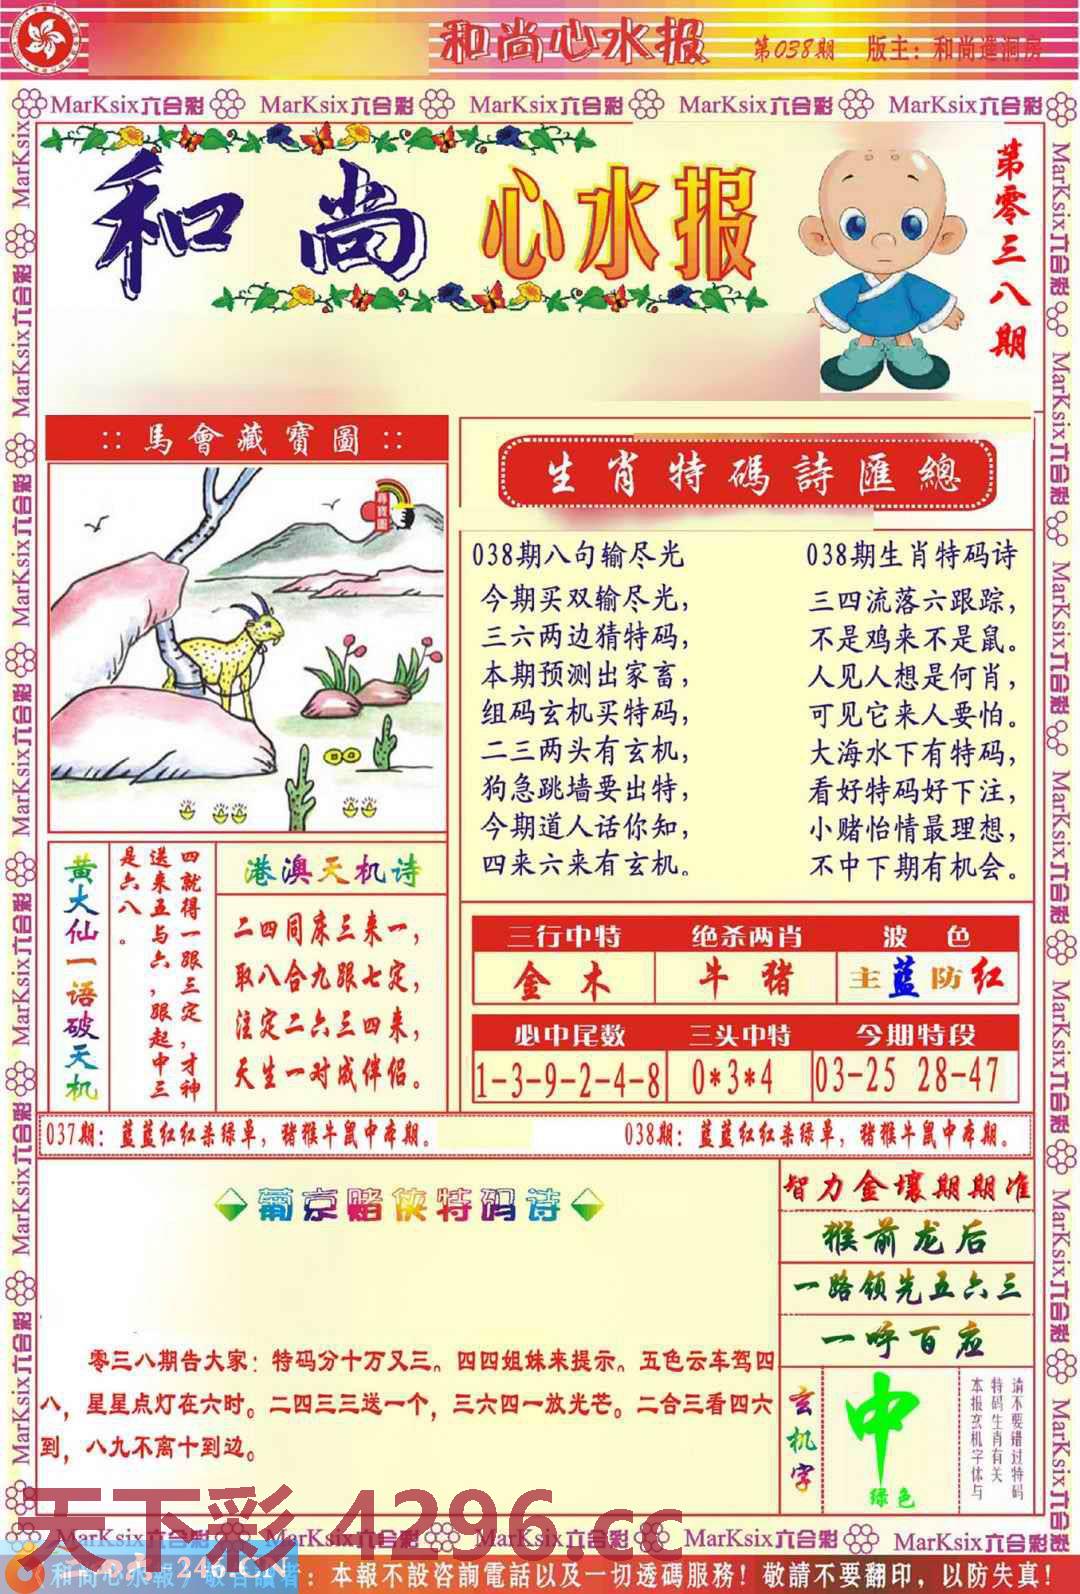 和尚心水报 第038期 版主：和尚进洞房
MarKsix六合彩 MarKsix六合彩 MarKsix六合彩 MarKsix六合彩 MarKsix六合彩
和尚 心水报
第零三八期
:: 馬會藏寶圖 ::
尋寶圖
生肖特碼詩匯總
038期八句输尽光
今期买双输尽光，
三六两边猜特码，
本期预测出家畜，
组码玄机买特码，
二三两头有玄机，
狗急跳墙要出特，
今期道人话你知，
四来六来有玄机。
038期生肖特码诗
三四流落六跟踪，
不是鸡来不是鼠。
人见人想是何肖，
可见它来人要怕。
大海水下有特码，
看好特码好下注，
小赌怡情最理想，
不中下期有机会。
黄大仙一语破天机
四就得一跟三定，才神
送来五与六，跟起中三
是六八。
港澳天机诗
二四同床三来一，
取八合九跟七定，
注定二六三四来，
天生一对成伴侣。
三行中特 绝杀两肖 波色
金木 牛猪 主蓝防红
必中尾数 三头中特 今期特段
1-3-9-2-4-8 0*3*4 03-25 28-47
037期：蓝蓝红红杀绿单，猪猴牛鼠中本期。
038期：蓝蓝红红杀绿单，猪猴牛鼠中本期。
葡京赌侠特码诗
零三八期告大家：特码分十万又三。四四姐妹来提示。五色云车驾四
八，星星点灯在六时。二四三三送一个，三六四一放光芒。二合三看四六
到，八九不离十到边。
智力金壤期期准
猴前龙后
一路领先五六三
一呼百应
玄机字
中
绿色
请不要错过特码
特码生肖有关
本报玄机字体与
天下彩 4296.cc
MarKsix六合彩 MarKsix六合彩 MarKsix六合彩 MarKsix六合彩 MarKsix六合彩
246.CN
和尚心水報，敬告讀者：本報不設咨詢電話以及一切透碼服務！敬請不要翻印，以防失真！